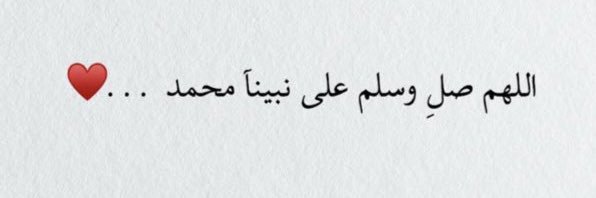 اللهم صلِ وسلم على نبينآ محمد . . .♥️